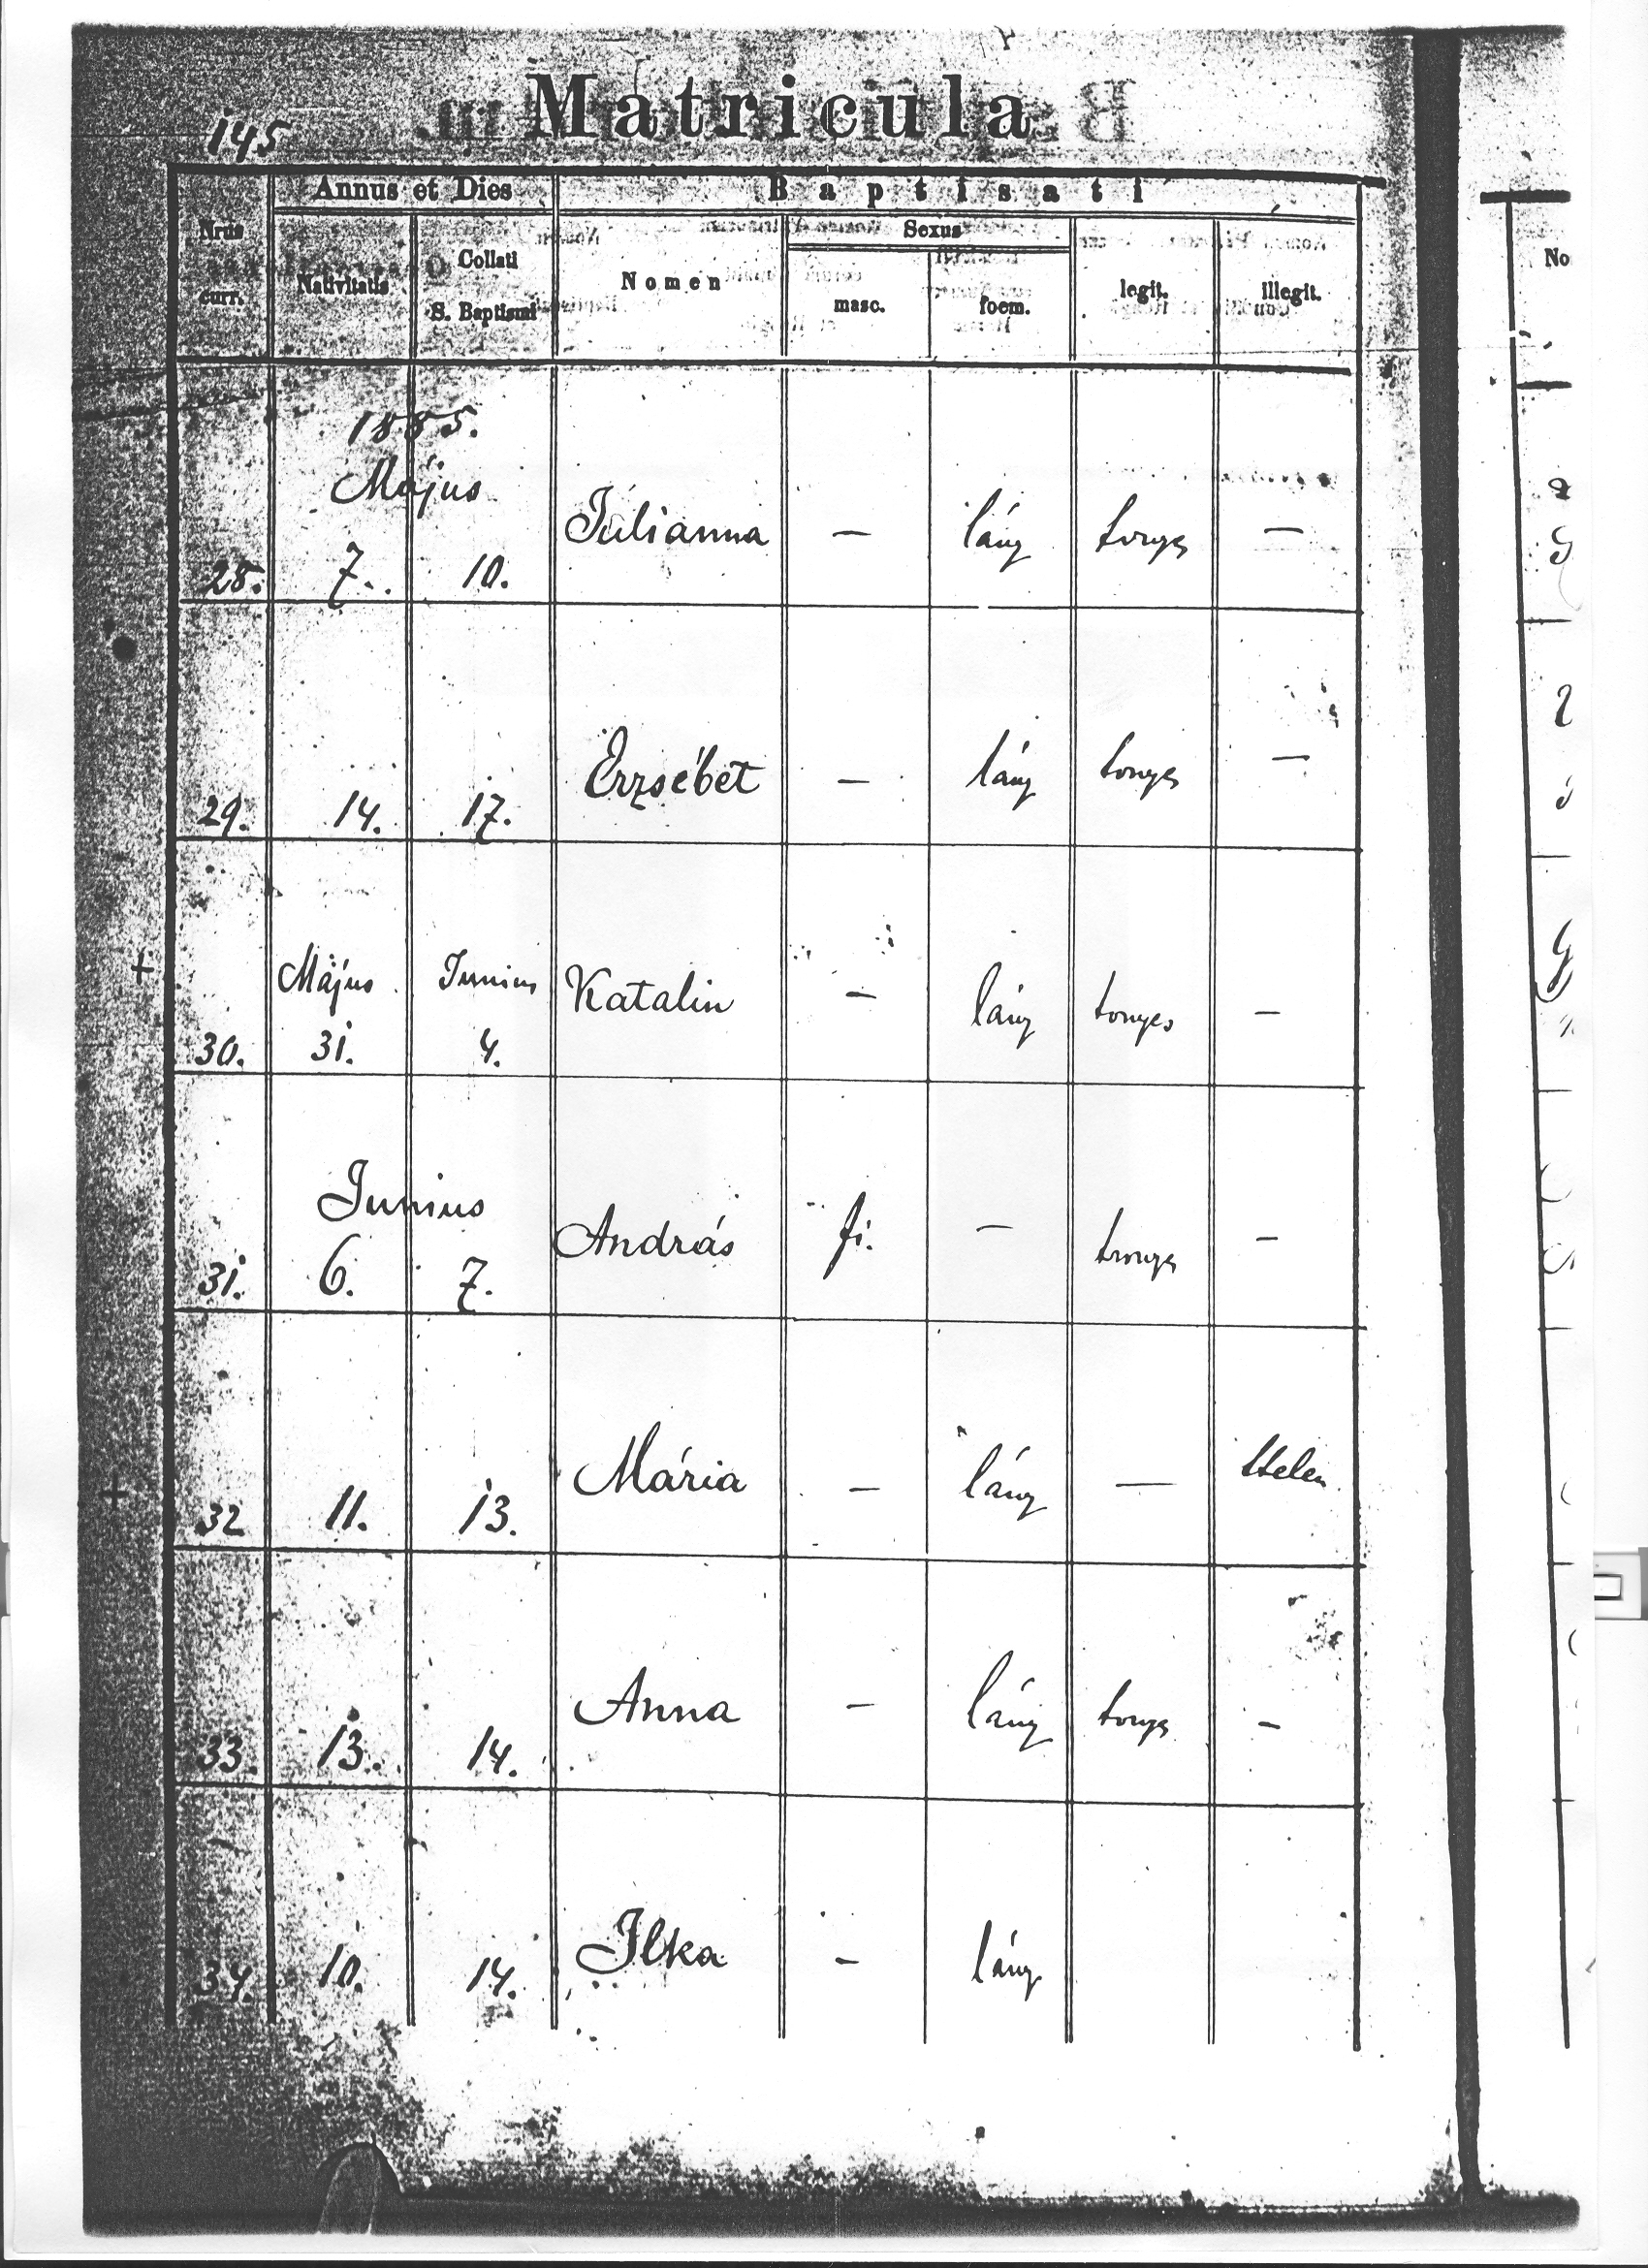 Matricula
145
Annus et Dies
Baptisati
Nrus curr.
Nativitatis
Collati S. Baptismi
Nomen
Sexus
masc.
foem.
legit.
illegit.
No
1885.
Május
28. 7. 10. Julianna — lány tvnyes —
29. 14. 17. Erzsébet — lány tvnyes —
Május Junius
30. 31. 4. Katalin — lány tvnyes —
Junius
31. 6. 7. András fi. — tvnyes —
32 11. 13. Mária — lány —
33. 13. 14. Anna — lány tvnyes —
34. 10. 14. Ilka — lány